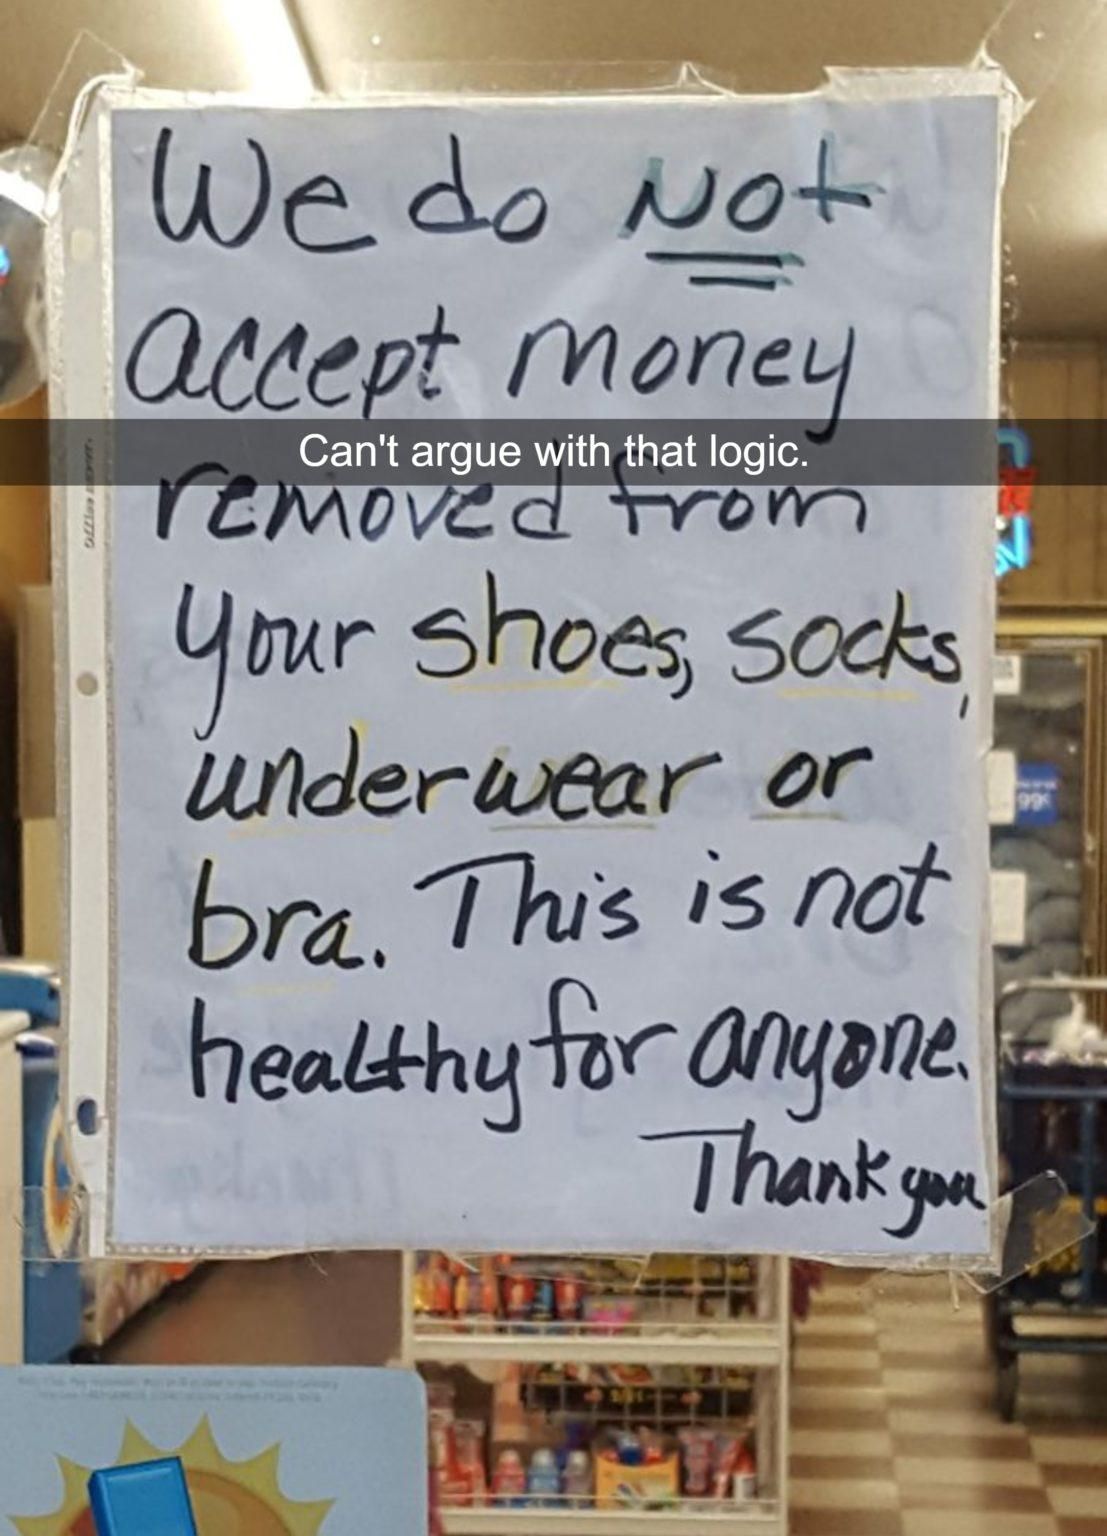 We do Not
accept money
Can't argue with that logic.
removed from
your shoes, socks,
underwear or
bra. This is not
healthy for anyone.
Thank you
99¢